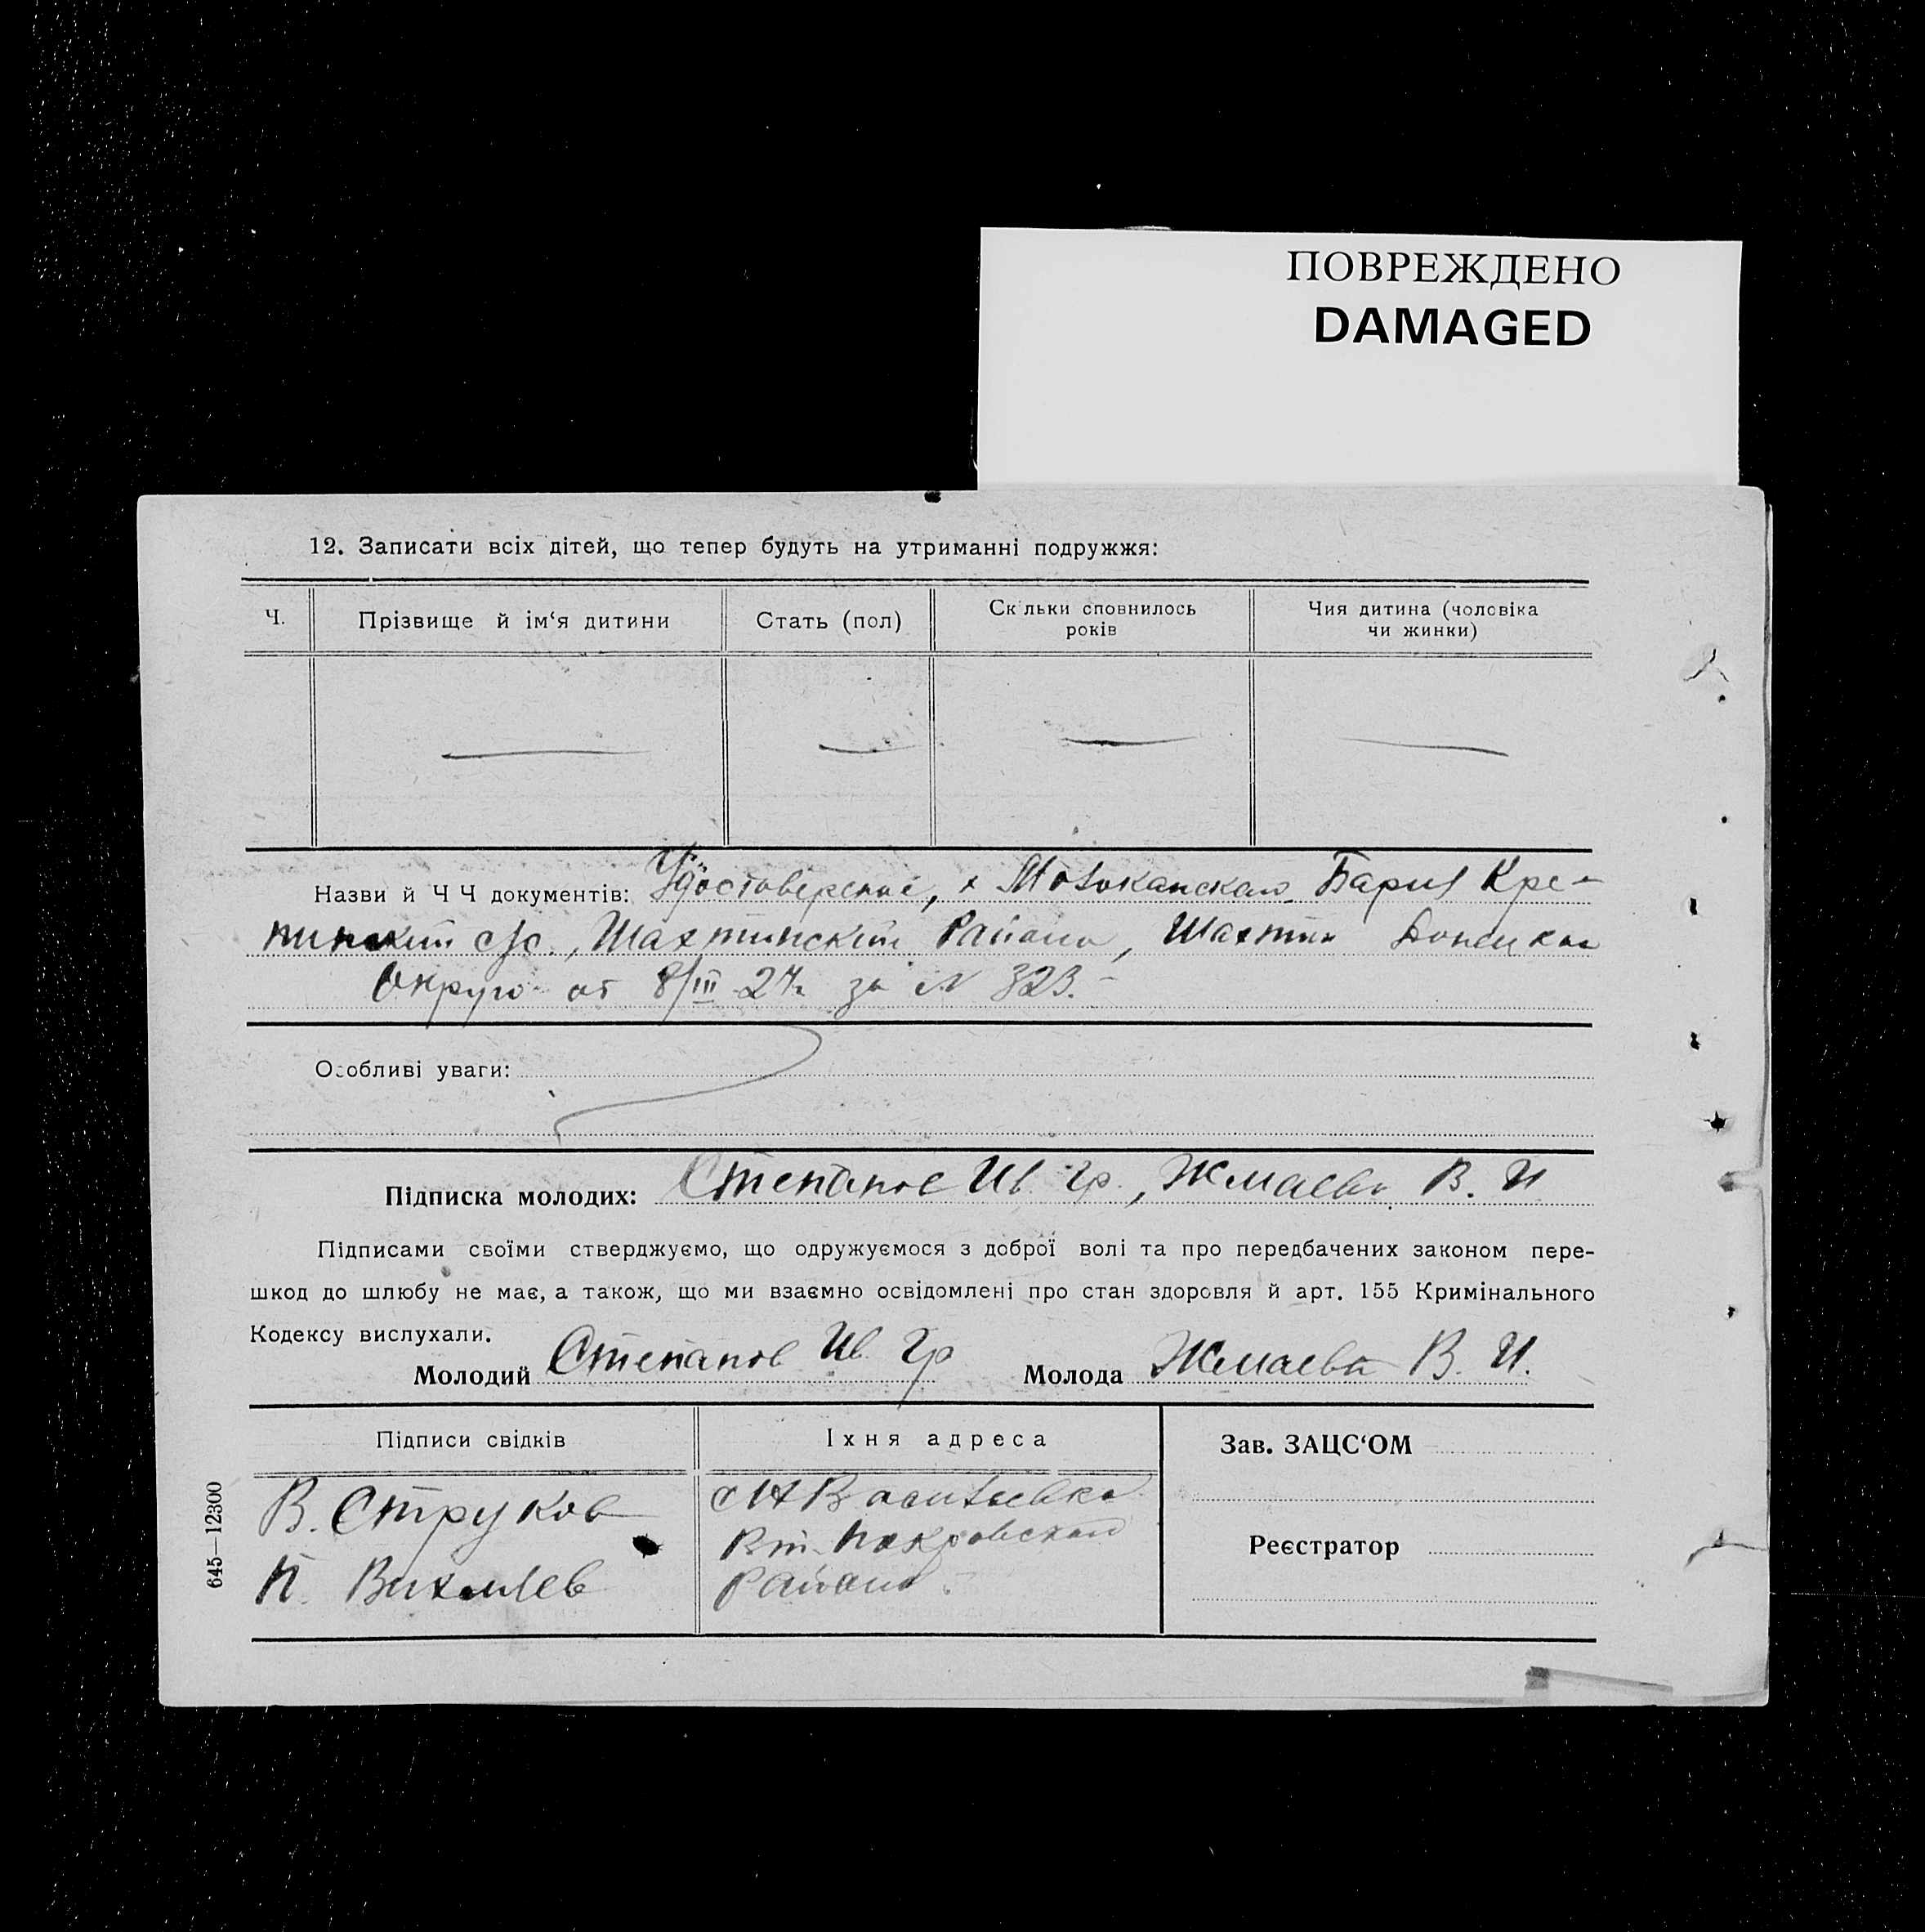 ПОВРЕЖДЕНО
DAMAGED
12. Записати всіх дітей, що тепер будуть на утриманні подружжя:
Ч.
Прізвище й ім‘я дитини
Стать (пол)
Скільки сповнилось
років
Чия дитина (чоловіка
чи жинки)
Назви й Ч Ч документів: Удостоверение, х
с/с., Шахтинский Района, Шахтин Донецкого
Округа от 8/III 27г за N 323. –
Особливі уваги:
Підписка молодих: Степанов Ив. Гр., Жмаева В. И
Підписами своїми стверджуємо, що одружуємося з доброї волі та про передбачених законом пере-
шкод до шлюбу не має, а також, що ми взаємно освідомлені про стан здоровля й арт. 155 Кримінального
Кодексу вислухали.
Молодий Степанов Ив. Гр Молода Жмаева В. И.
Підписи свідків
Їхня адреса
Зав. ЗАЦС‘ОМ
В. Струков
Васильевка
Покровского
Реєстратор
П.
Района
645—12300